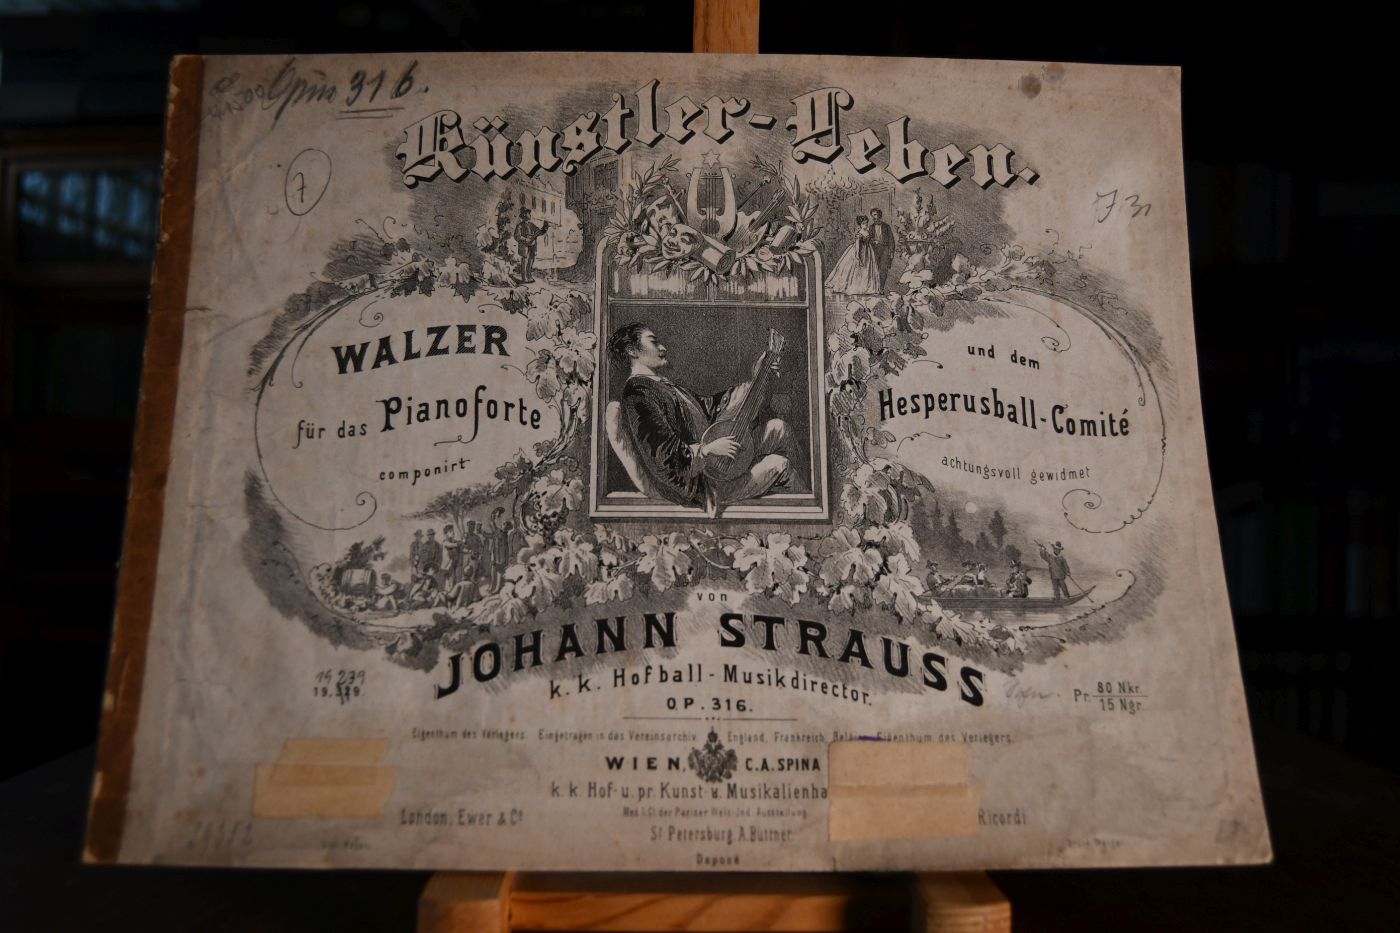 Opus 316.
Künstler-Leben.
7
WALZER
für das Pianoforte
componirt
und dem
Hesperusball-Comité
achtungsvoll gewidmet
von
JOHANN STRAUSS
k. k. Hofball-Musikdirector.
OP. 316.
19 239
Pr. 80 Nkr.
15 Ngr.
Eigenthum des Verlegers. Eingetragen in das Vereinsarchiv. England, Frankreich, Belgien. Eigenthum des Verlegers.
WIEN, C. A. SPINA
k. k. Hof- u. pr. Kunst- u. Musikalienha
London, Ewer & Co
Ricordi
St Petersburg, A. Büttner.
Deposé